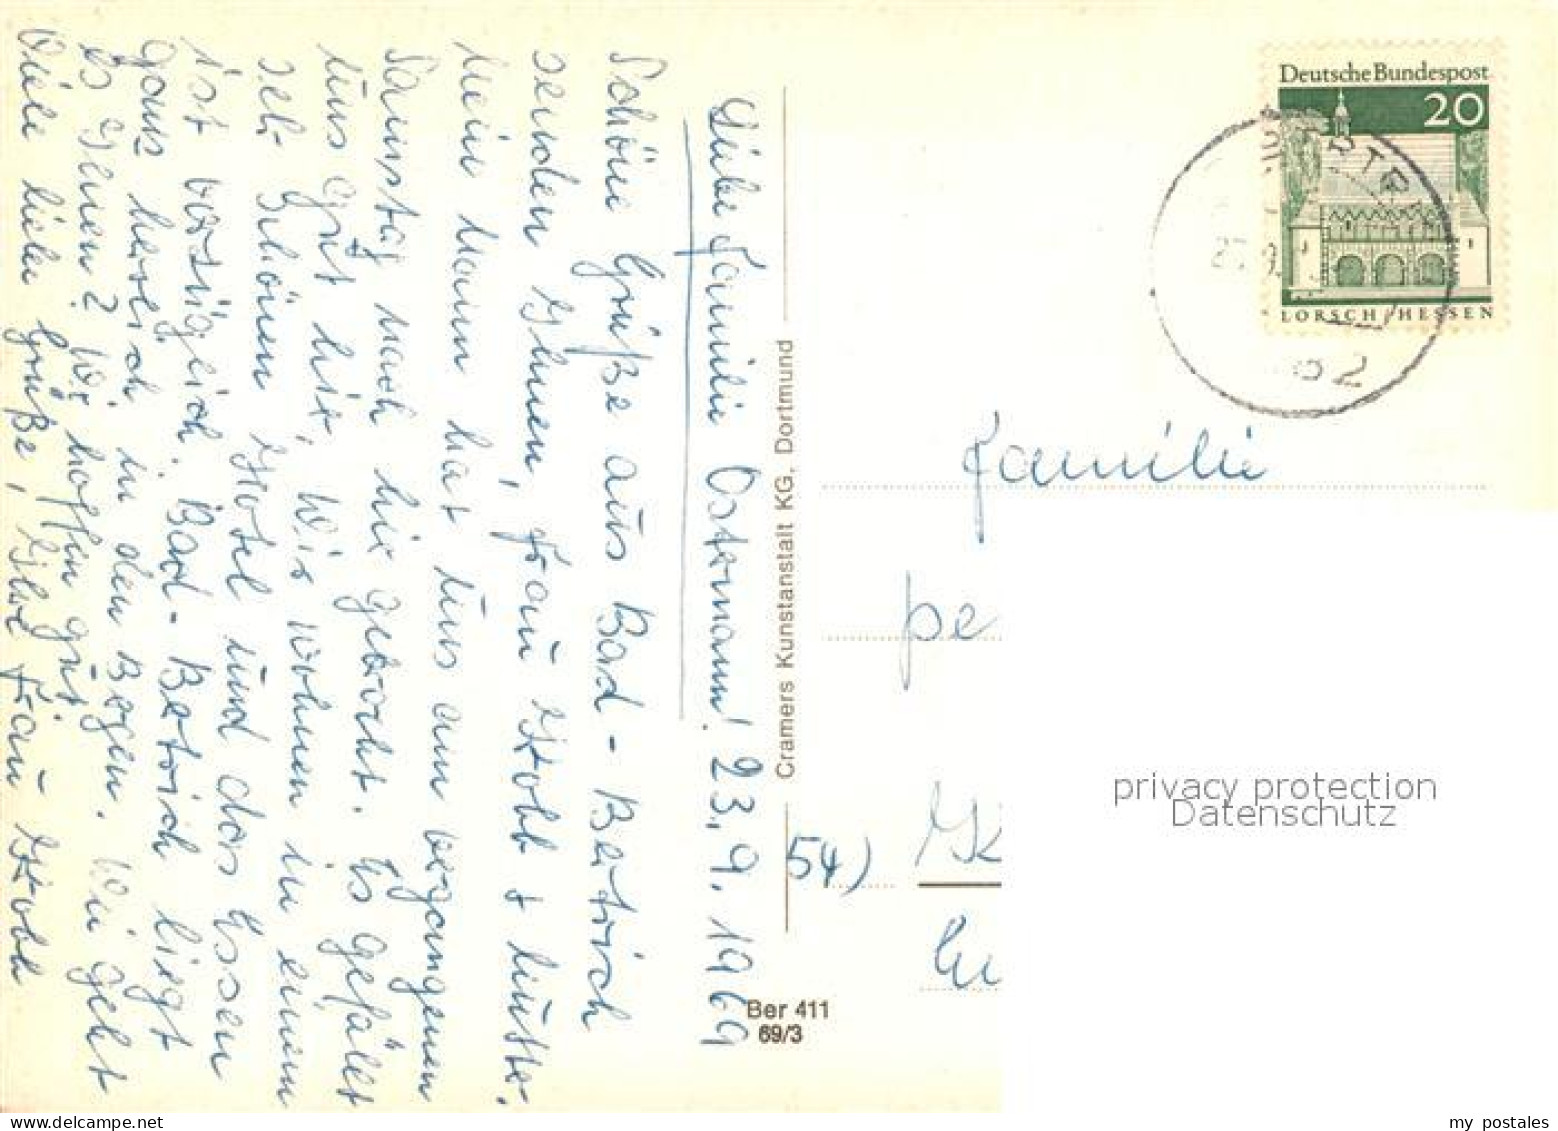 Liebe Familie Ostermann! 23.9.1969
Schöne Grüße aus Bad-Bertrich
senden Ihnen, Frau Hobb + Mutter.
Mein Mann hat uns am vergangenen
Samstag nach hier gebracht. Es gefällt
uns gut hier, wir wohnen in einem
sehr schönen Hotel und das Essen
ist vorzüglich. Bad-Bertrich liegt
ganz herrlich in den Bergen. Wie geht
es Ihnen? Wir hoffen gut.
Viele liebe Grüße, Ihre Frau Hobb
Cramers Kunstanstalt KG. Dortmund
Ber 411
69/3
Deutsche Bundespost
20
LORSCH/HESSEN
Familie
pe
54)
privacy protection
Datenschutz
my postales